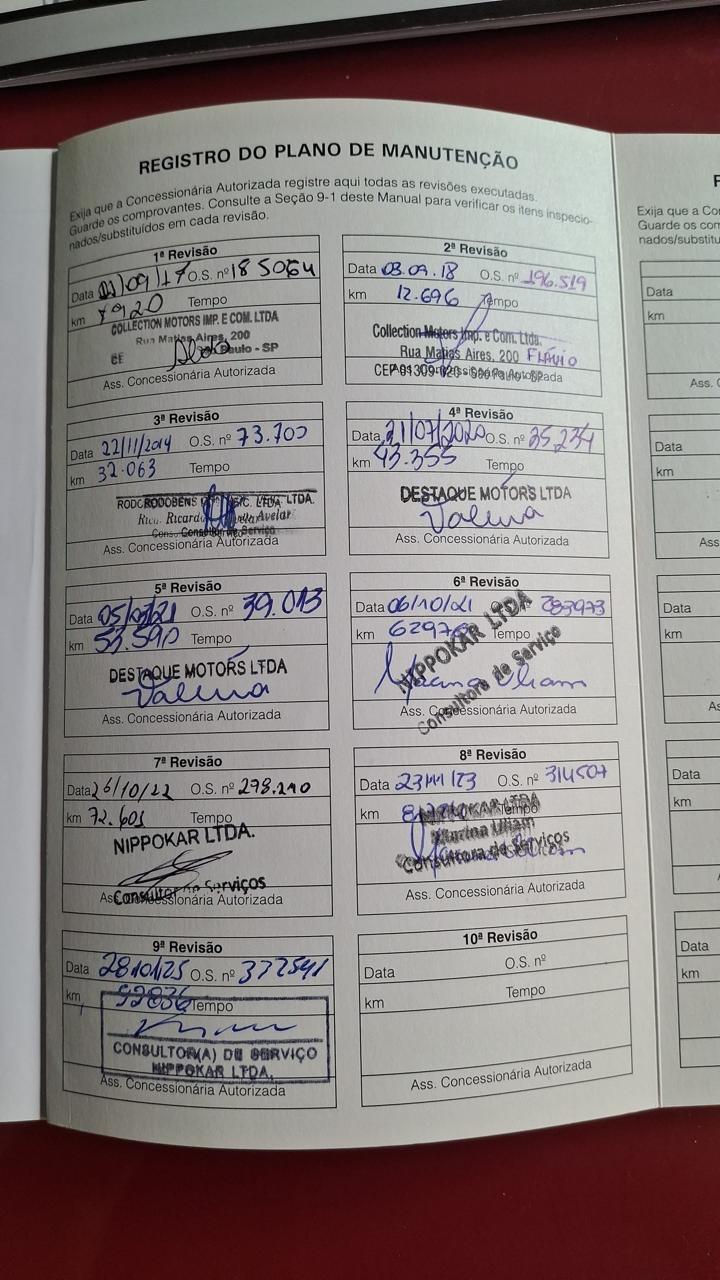 REGISTRO DO PLANO DE MANUTENÇÃO
Exija que a Concessionária Autorizada registre aqui todas as revisões executadas.
Guarde os comprovantes. Consulte a Seção 9-1 deste Manual para verificar os itens inspecio-
nados/substituídos em cada revisão.
1ª Revisão
Data /09/17 O.S. nº 185064
km 7920 Tempo
COLLECTION MOTORS IMP. E COM. LTDA
Rua Matias Aires, 200
Paulo - SP
Ass. Concessionária Autorizada
2ª Revisão
Data 03.09.18 O.S. nº 196.519
km 12.696 Tempo
Collection Motors Imp. e Com. Ltda.
Rua Matias Aires, 200 FLÁVIO
CEP 01309-020 - São Paulo - SP
Ass. Concessionária Autorizada
3ª Revisão
Data 22/11/2019 O.S. nº 73.700
km 32.063 Tempo
RODOBENS LTDA.
Ricardo Avelar
Consultor de Serviço
Ass. Concessionária Autorizada
4ª Revisão
Data 21/07/2020 O.S. nº 35.234
km 43.355 Tempo
DESTAQUE MOTORS LTDA
Ass. Concessionária Autorizada
5ª Revisão
Data 05/ /21 O.S. nº 39.013
km 53.590 Tempo
DESTAQUE MOTORS LTDA
Ass. Concessionária Autorizada
6ª Revisão
Data 06/10/21 283973
km 6297 Tempo
NIPPOKAR LTDA
Consultora de Serviço
Ass. Concessionária Autorizada
7ª Revisão
Data 26/10/22 O.S. nº 298.210
km 72.601 Tempo
NIPPOKAR LTDA.
Consultor de Serviços
Ass. Concessionária Autorizada
8ª Revisão
Data 23/11/23 O.S. nº 314507
km Tempo
NIPPOKAR LTDA
Marina Uliam
Consultora de Serviços
Ass. Concessionária Autorizada
9ª Revisão
Data 28/10/25 O.S. nº 372541
km 99836 Tempo
CONSULTOR(A) DE SERVIÇO
NIPPOKAR LTDA.
Ass. Concessionária Autorizada
10ª Revisão
Data O.S. nº
km Tempo
Ass. Concessionária Autorizada
Exija que a Co
Guarde os com
nados/substitu
Data
km
Ass. C
Data
km
Ass
Data
km
As
Data
km
A
Data
km